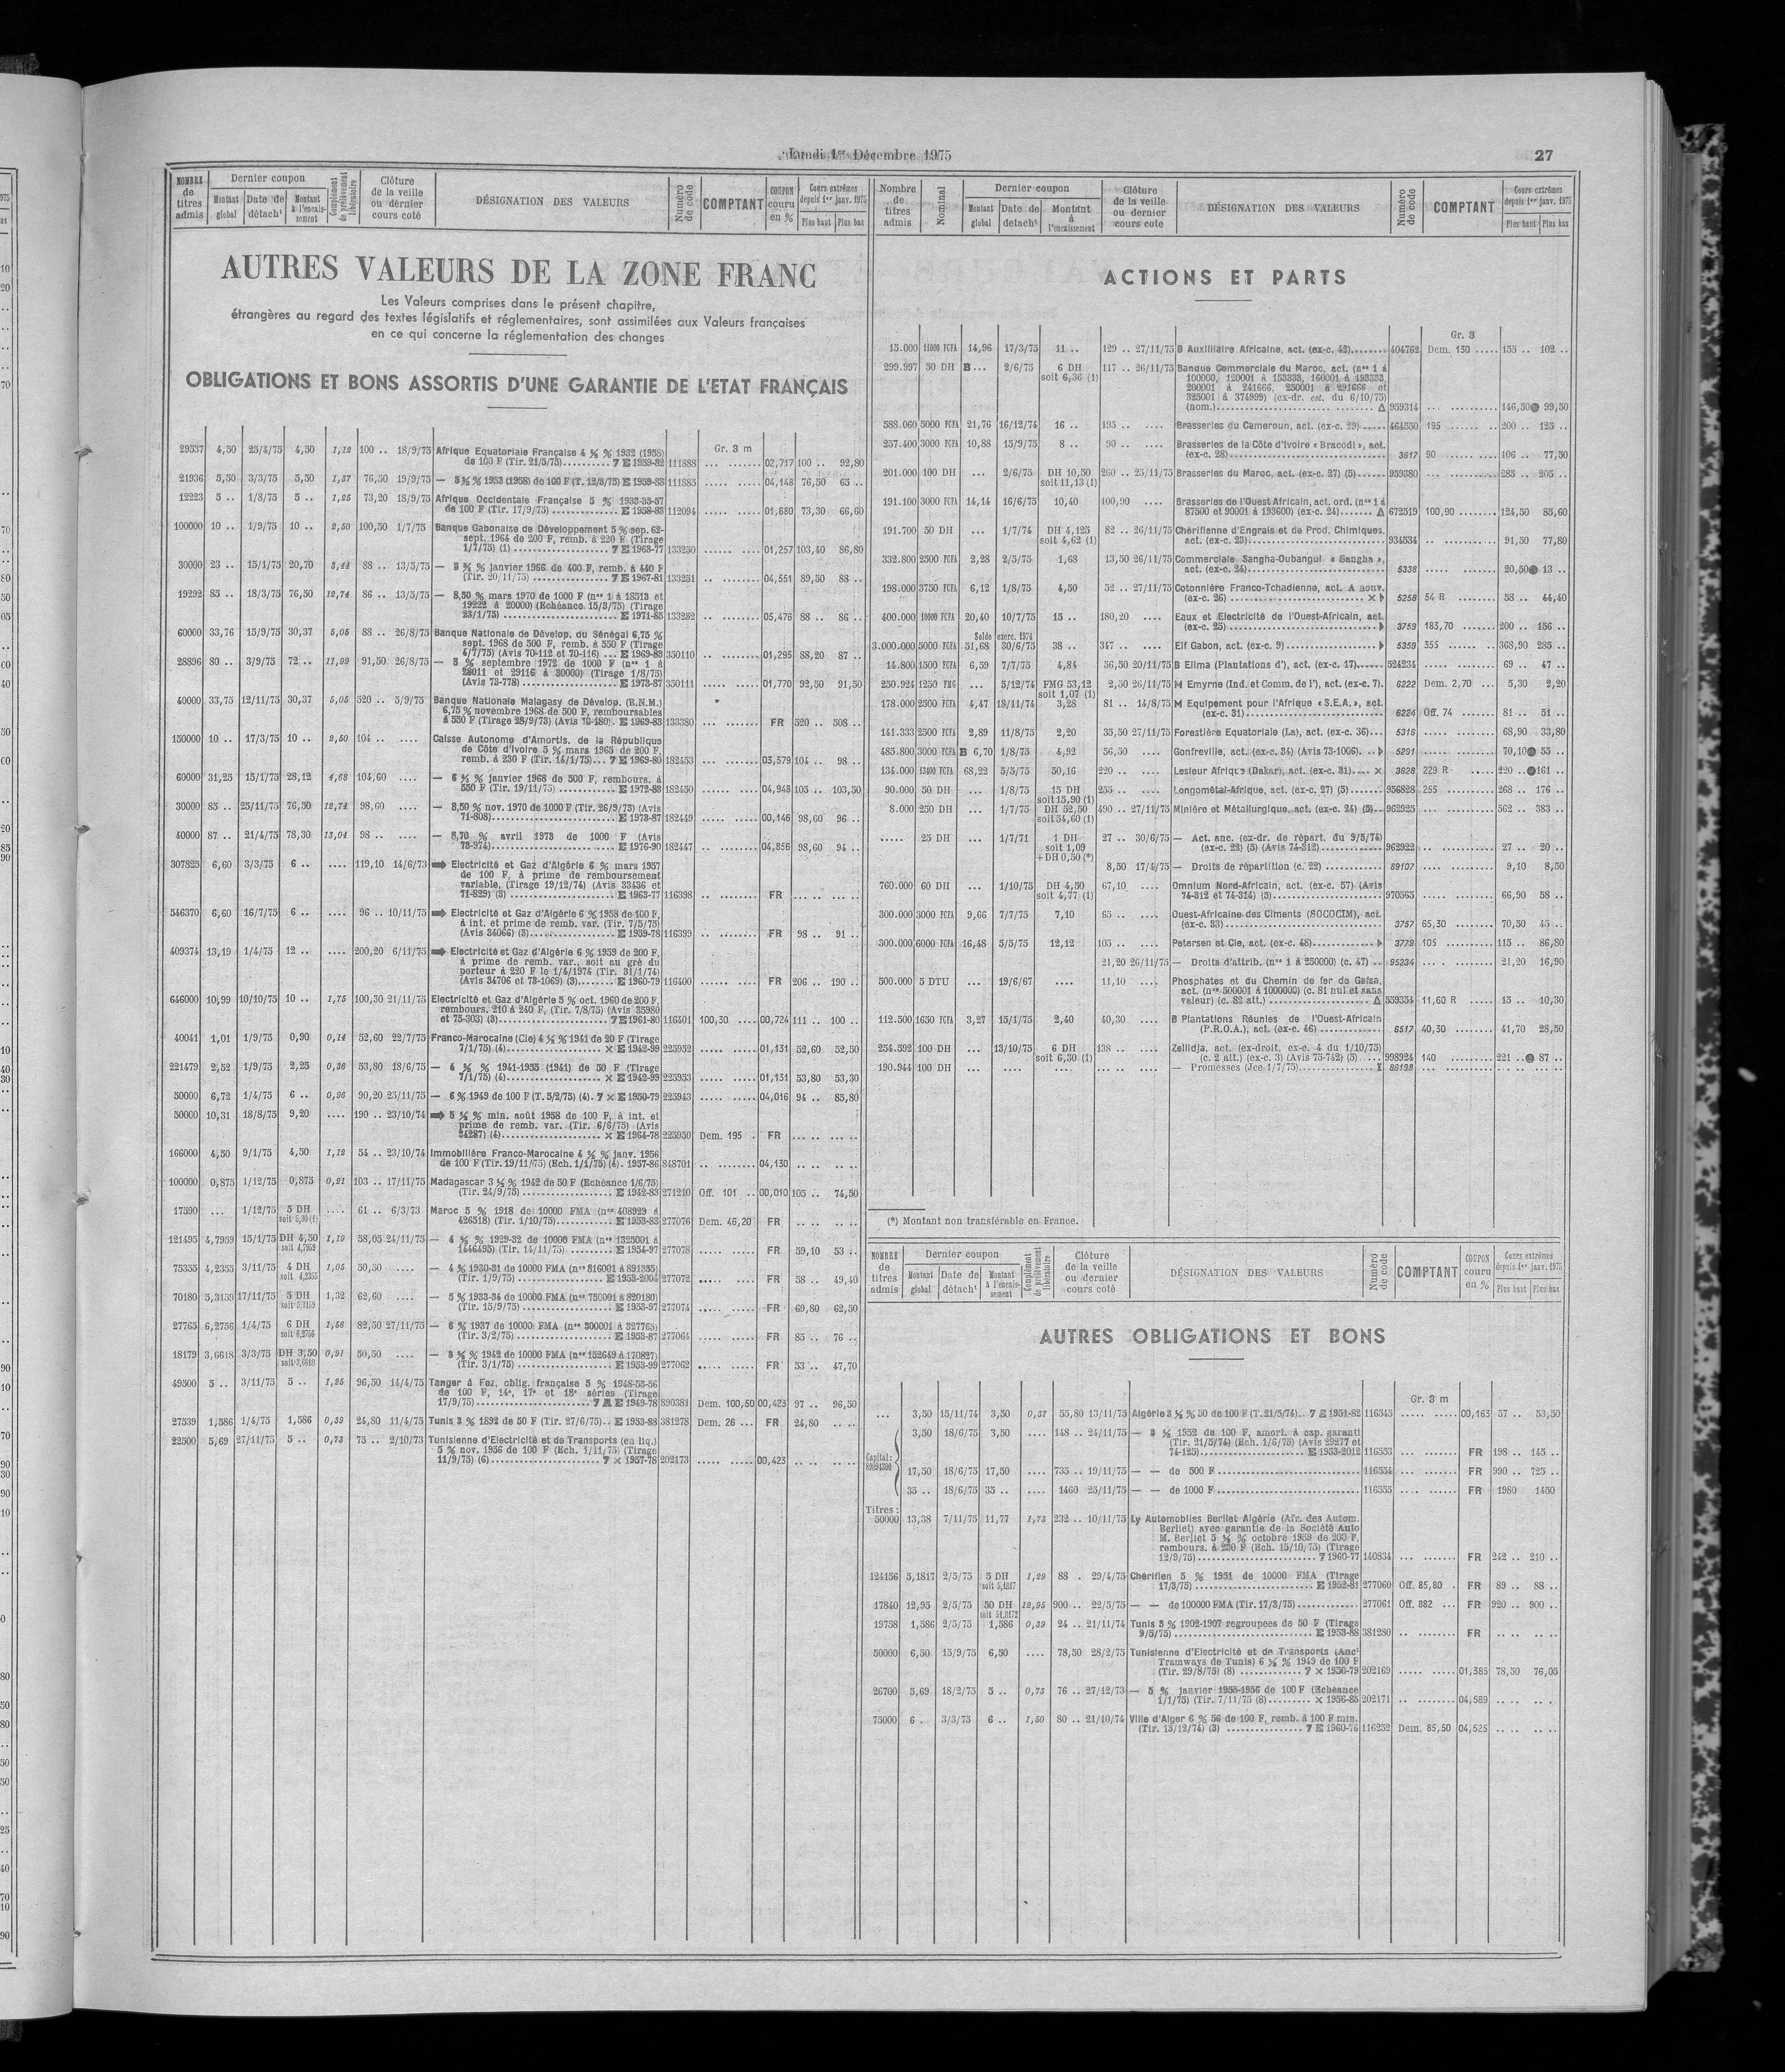 Lundi 1er Décembre 1975
27
NOMBRE de titres admis | Dernier coupon | Montant global | Date de détacht | Montant à l'encaissement | Complément de prélèvement libératoire | Clôture de la veille ou dernier cours coté | DÉSIGNATION DES VALEURS | Numéro de code | COMPTANT | COUPON couru en % | Cours extrêmes depuis 1er janv. 1975 | Plus haut | Plus bas
AUTRES VALEURS DE LA ZONE FRANC
Les Valeurs comprises dans le présent chapitre,
étrangères au regard des textes législatifs et réglementaires, sont assimilées aux Valeurs françaises
en ce qui concerne la réglementation des changes
OBLIGATIONS ET BONS ASSORTIS D'UNE GARANTIE DE L'ETAT FRANÇAIS
Gr. 3 m
29537 4,50 25/4/75 4,50 1,12 100 .. 18/9/75 Afrique Equatoriale Française 4 ½ % 1932 (1958)
de 100 F (Tir. 21/5/75).......... 7 E 1959-82 111888 ... ....... 02,717 100 .. 92,80
21936 5,50 3/3/75 5,50 1,37 76,50 19/9/75 — 5 ½ % 1933 (1958) de 100 F (T. 12/3/75) E 1959-83 111885 ..... ..... 04,148 76,50 65 ..
12223 5 .. 1/8/75 5 .. 1,25 73,20 18/9/75 Afrique Occidentale Française 5 % 1933-35-57
de 100 F (Tir. 17/9/75) ............. E 1958-83 112094 ..... ..... 01,680 73,30 66,60
100000 10 .. 1/9/75 10 .. 2,50 100,50 1/7/75 Banque Gabonaise de Développement 5 % sep. 62-
sept. 1964 de 200 F, remb. à 220 F (Tirage
1/7/75) (1) .................... 7 E 1963-77 133250 ...... .... 01,257 103,40 86,80
30000 23 .. 15/1/75 20,70 3,44 88 .. 13/5/75 — 5 ¾ % janvier 1966 de 400 F, remb. à 440 F
(Tir. 20/11/75) ................ 7 E 1967-81 133251 .. ........ 04,551 89,50 88 ..
19292 85 .. 18/3/75 76,50 12,74 86 .. 13/5/75 — 8,50 % mars 1970 de 1000 F (nos 1 à 18513 et
19222 à 20000) (Echéance 15/3/75) (Tirage
23/1/75) ......................... E 1971-85 133252 .. ........ 05,476 88 .. 86 ..
60000 33,76 15/9/75 30,37 5,05 88 .. 26/8/75 Banque Nationale de Dévelop. du Sénégal 6,75 %
sept. 1968 de 500 F, remb. à 550 F (Tirage
4/7/75) (Avis 70-112 et 70-116) ... E 1969-83 350110 .. ........ 01,295 88,20 87 ..
28896 80 .. 3/9/75 72 .. 11,99 91,50 26/8/75 — 8 % septembre 1972 de 1000 F (nos 1 à
28011 et 29116 à 30000) (Tirage 1/8/75)
(Avis 73-778) .................... E 1973-87 350111 ...... .... 01,770 92,50 91,50
40000 33,75 12/11/75 30,37 5,05 520 .. 5/9/75 Banque Nationale Malagasy de Dévelop. (B.N.M.)
6,75 % novembre 1968 de 500 F, remboursables
à 550 F (Tirage 28/9/73) (Avis 70-180). E 1969-83 133380 ... ....... FR 520 .. 508 ..
150000 10 .. 17/3/75 10 .. 2,50 104 .. .... Caisse Autonome d'Amortis. de la République
de Côte d'Ivoire 5 % mars 1965 de 200 F,
remb. à 230 F (Tir. 14/1/75)... 7 E 1969-80 182453 ... ....... 03,579 104 .. 98 ..
60000 31,25 15/1/75 28,12 4,68 104,60 .... — 6 ¼ % janvier 1968 de 500 F, rembours. à
550 F (Tir. 19/11/75) ............ E 1972-83 182450 ...... .... 04,948 105 .. 103,50
30000 85 .. 25/11/75 76,50 12,74 98,60 .... — 8,50 % nov. 1970 de 1000 F (Tir. 26/9/73) (Avis
71-808).......................... E 1973-87 182449 ..... ..... 00,146 98,60 96 ..
40000 87 .. 21/4/75 78,30 13,04 98 .. .... — 8,70 % avril 1973 de 1000 F (Avis
73-974).......................... E 1976-90 182447 .. ........ 04,856 98,60 94 ..
307825 6,60 3/3/75 6 .. .... 119,10 14/6/73 ➡ Electricité et Gaz d'Algérie 6 % mars 1957
de 100 F, à prime de remboursement
variable, (Tirage 19/12/74) (Avis 33436 et
71-829) (3) ...................... E 1963-77 116398 .. ........ FR ... .. ... ..
546370 6,60 16/7/75 6 .. .... 96 .. 10/11/75 ➡ Electricité et Gaz d'Algérie 6 % 1958 de 100 F,
à int. et prime de remb. var. (Tir. 7/5/75)
(Avis 34066) (3).................. E 1959-78 116399 .. ........ FR 98 .. 91 ..
409374 13,19 1/4/75 12 .. .... 200,20 6/11/75 ➡ Electricité et Gaz d'Algérie 6 % 1959 de 200 F,
à prime de remb. var., soit au gré du
porteur à 220 F le 1/4/1974 (Tir. 31/1/74)
(Avis 34706 et 73-1069) (3)........ E 1960-79 116400 ...... .... FR 206 .. 190 ..
646000 10,99 10/10/75 10 .. 1,75 100,30 21/11/75 Electricité et Gaz d'Algérie 5 % oct. 1960 de 200 F,
rembours. 210 à 240 F, (Tir. 7/8/75) (Avis 35980
et 75-303) (3) ...................... 7 E 1961-80 116401 100,30 .... 00,724 111 .. 100 ..
40041 1,01 1/9/75 0,90 0,14 52,60 22/7/75 Franco-Marocaine (Cie) 4 ½ % 1941 de 20 F (Tirage
7/1/75) (4).................... × E 1942-99 225952 ..... ..... 01,131 52,60 52,50
221479 2,52 1/9/75 2,25 0,36 53,80 18/6/75 — 4 ½ % 1941-1955 (1941) de 50 F (Tirage
7/1/75) (4).................... × E 1942-99 225953 ..... ..... 01,131 53,80 53,30
50000 6,72 1/4/75 6 .. 0,96 90,20 25/11/75 — 6 % 1949 de 100 F (T. 5/2/75) (4). 7 × E 1950-79 225943 ..... ..... 04,016 94 .. 85,80
50000 10,31 18/8/75 9,20 .... 190 .. 23/10/74 ➡ 5 ½ % min. août 1958 de 100 F, à int. et
prime de remb. var. (Tir. 6/6/75) (Avis
34287) (4).................... × E 1964-78 225950 Dem. 195 . FR ... .. ... ..
166000 4,50 9/1/75 4,50 1,12 54 .. 23/10/74 Immobilière Franco-Marocaine 4 ½ % janv. 1956
de 100 F (Tir. 19/11/75) (Ech. 1/1/75) (4). 1957-86 848701 .. ........ 04,130 .. .. .. ..
100000 0,875 1/12/75 0,875 0,21 103 .. 17/11/75 Madagascar 3 ½ % 1942 de 50 F (Echéance 1/6/75)
(Tir. 24/9/75) .................. E 1942-83 271210 Off. 101 .. 00,010 105 .. 74,50
17390 ... 1/12/75 5 DH soit 5,30 (1) .... 61 .. 6/3/73 Maroc 5 % 1918 de 10000 FMA (nos 408929 à
426518) (Tir. 1/10/75)............ E 1953-83 277076 Dem. 46,20 FR .. .. .. ..
121495 4,7959 15/1/75 DH 4,50 soit 4,7959 1,19 58,05 24/11/75 — 4 ½ % 1929-32 de 10000 FMA (nos 1325001 à
1446495) (Tir. 14/11/75) ......... E 1954-97 277078 ..... .... FR 59,10 53 ..
75355 4,2355 3/11/75 4 DH soit 4,2355 1,05 50,50 .... — 4 % 1930-31 de 10000 FMA (nos 816001 à 891355)
(Tir. 1/9/75) .................. E 1953-2004 277072 ..... .... FR 58 .. 49,40
70180 5,3159 17/11/75 5 DH soit 5,3159 1,32 62,60 .... — 5 % 1933-34 de 10000 FMA (nos 750001 à 820180)
(Tir. 15/9/75) .................. E 1953-97 277074 ..... ..... FR 69,80 62,50
27765 6,2756 1/4/75 6 DH soit 6,2756 1,56 82,50 27/11/75 — 6 % 1937 de 10000 FMA (nos 300001 à 327765)
(Tir. 3/2/75) .................... E 1953-87 277064 ..... ..... FR 85 .. 76 ..
18179 3,6618 3/3/75 DH 3,50 soit 3,6618 0,91 50,50 .... — 3 ½ % 1942 de 10000 FMA (nos 152649 à 170827)
(Tir. 3/1/75) .................... E 1953-99 277062 ..... ..... FR 53 .. 47,70
49500 5 .. 3/11/75 5 .. 1,25 96,50 14/4/75 Tanger à Fez, oblig. française 5 % 1948-53-56
de 100 F, 14e, 17e et 18e séries (Tirage
17/9/75)...................... 7 E 1949-78 890381 Dem. 100,50 00,423 97 .. 96,50
27539 1,586 1/4/75 1,586 0,39 24,80 11/4/75 Tunis 3 % 1892 de 50 F (Tir. 27/6/75).. E 1953-88 381278 Dem. 26 ... FR 24,80 .. ..
22500 5,69 27/11/75 5 .. 0,73 75 .. 2/10/73 Tunisienne d'Electricité et de Transports (en liq.)
5 % nov. 1956 de 100 F (Ech. 1/11/75) (Tirage
11/9/75) (6)...................... 7 × 1957-78 202173 ..... ..... 00,423 .. .. .. ..
Nombre de titres admis | Nominal | Dernier coupon | Montant global | Date de detacht | Montant à l'encaissement | Clôture de la veille ou dernier cours cote | DÉSIGNATION DES VALEURS | Numéro de code | COMPTANT | Cours extrêmes depuis 1er janv. 1975 | Plus haut | Plus bas
ACTIONS ET PARTS
Gr. 3
15.000 11000 FCFA 14,96 17/3/75 11 .. 129 .. 27/11/75 B Auxiliaire Africaine, act. (ex-c. 42)....... 404762 Dem. 130 ..... 155 .. 102 ..
299.997 50 DH B... 2/6/75 6 DH soit 6,36 (1) 117 .. 26/11/75 Banque Commerciale du Maroc, act. (nos 1 à
100000, 120001 à 153333, 160001 à 193333,
200001 à 241666, 250001 à 291666 et
325001 à 374999) (ex-dr. est. du 6/10/75)
(nom.)........................ ........ Δ 959314 ... ......... 146,50 ● 99,50
588.060 5000 FCFA 21,76 16/12/74 16 .. 195 .. .... Brasseries du Cameroun, act. (ex-c. 29) ..... 464550 195 ...... .. 200 .. 125 ..
257.400 3000 FCFA 10,88 15/9/75 8 .. 90 .. .... Brasseries de la Côte d'Ivoire « Bracodi », act.
(ex-c. 28)................................ 3617 90 ..... .... 106 .. 77,50
201.000 100 DH ... 2/6/75 DH 10,50 soit 11,13 (1) 260 .. 25/11/75 Brasseries du Maroc, act. (ex-c. 27) (5)...... 959380 ... ......... 285 .. 205 ..
191.100 3000 FCFA 14,14 16/6/75 10,40 100,90 .... Brasseries de l'Ouest Africain, act. ord. (nos 1 à
87500 et 90001 à 193600) (ex-c. 24)....... Δ 672519 100,90 ........ 124,50 85,60
191.700 50 DH ... 1/7/74 DH 4,125 soit 4,62 (1) 82 .. 26/11/75 Chérifienne d'Engrais et de Prod. Chimiques,
act. (ex-c. 23)............................ 934534 .. .......... 91,50 77,80
332.800 2500 FCFA 2,28 2/5/75 1,68 13,50 26/11/75 Commerciale Sangha-Oubangui « Sangha »,
act. (ex-c. 24)............................ 5336 ..... ....... 20,50 ● 13 ..
198.000 3750 FCFA 6,12 1/8/75 4,50 52 .. 27/11/75 Cotonnière Franco-Tchadienne, act. A nouv.
(ex-c. 26) ............................. × 5258 54 R ....... 58 .. 44,40
400.000 10000 FCFA 20,40 10/7/75 15 .. 180,20 .... Eaux et Electricité de l'Ouest-Africain, act.
(ex-c. 25)................................ 3759 183,70 ....... 200 .. 156 ..
Solde exerc. 1974
3.000.000 5000 FCFA 51,68 30/6/75 38 .. 347 .. .... Elf Gabon, act. (ex-c. 9) .................... 5359 355 ...... .. 368,90 285 ..
14.800 1500 FCFA 6,59 7/7/75 4,84 56,50 20/11/75 B Elima (Plantations d'), act. (ex-c. 17)...... 524234 ..... ........ 69 .. 47 ..
250.924 1250 FMG ... 5/12/74 FMG 53,12 soit 1,07 (1) 2,50 26/11/75 M Emyrne (Ind. et Comm. de l'), act. (ex-c. 7). 6222 Dem. 2,70 ... 5,30 2,20
178.000 2500 FCFA 4,47 18/11/74 3,28 81 .. 14/8/75 M Equipement pour l'Afrique « S.E.A. », act.
(ex-c. 31) ............................... 6224 Off. 74 ....... 81 .. 51 ..
141.333 2500 FCFA 2,89 11/8/75 2,20 35,50 27/11/75 Forestière Equatoriale (La), act. (ex-c. 36)... 5316 ..... ........ 68,90 33,80
485.800 3000 FCFA B 6,70 1/8/75 4,92 56,50 .... Gonfreville, act. (ex-c. 34) (Avis 73-1006). .. 5291 ..... ........ 70,10 ● 55 ..
134.000 13400 FCFA 68,22 5/5/75 50,16 220 .. .... Lesieur Afrique (Dakar), act. (ex-c. 31).... × 3628 229 R ..... 220 .. ● 161 ..
90.000 50 DH ... 1/8/75 15 DH soit 15,90 (1) 255 .. .... Longométal-Afrique, act. (ex-c. 27) (5) ....... 956828 255 .......... 268 .. 176 ..
8.000 250 DH ... 1/7/75 DH 52,50 soit 54,60 (1) 490 .. 27/11/75 Minière et Métallurgique, act. (ex-c. 24) (5)... 962925 ... ......... 562 .. 383 ..
..... 25 DH ... 1/7/71 1 DH soit 1,09 + DH 0,50 (*) 27 .. 30/6/75 — Act. anc. (ex-dr. de répart. du 9/5/74)
(ex-c. 22) (5) (Avis 74-312)............. 962922 .. .......... 27 .. 20 ..
8,50 17/4/75 — Droits de répartition (c. 22) ............ 89107 .... ........ 9,10 8,50
760.000 60 DH ... 1/10/75 DH 4,50 soit 4,77 (1) 67,10 .... Omnium Nord-Africain, act. (ex-c. 57) (Avis
74-312 et 74-314) (5)...................... 970565 ..... ....... 66,90 58 ..
300.000 3000 FCFA 9,66 7/7/75 7,10 65 .. .... Ouest-Africaine des Ciments (SOCOCIM), act.
(ex-c. 33) ................................ 3757 65,50 ........ 70,50 45 ..
300.000 6000 FCFA 16,48 5/5/75 12,12 105 .. .... Petersen et Cie, act. (ex-c. 48).............. 3779 105 ......... 115 .. 86,80
21,20 26/11/75 — Droits d'attrib. (nos 1 à 250000) (c. 47) .. 95234 ... . ........ 21,20 16,90
500.000 5 DTU ... 19/6/67 .... 11,10 .... Phosphates et du Chemin de fer de Gafsa,
act. (nos 500001 à 1000000) (c. 81 nul et sans
valeur) (c. 82 att.) ..................... Δ 559354 11,60 R ..... 15 .. 10,30
112.500 1650 FCFA 3,27 15/1/75 2,40 40,30 .... B Plantations Réunies de l'Ouest-Africain
(P.R.O.A.), act. (ex-c. 46) ............. 6517 40,30 ........ 41,70 28,50
254.592 100 DH ... 13/10/75 6 DH soit 6,30 (1) 138 .. .... Zellidja, act. (ex-droit, ex-c. 4 du 1/10/75)
(c. 2 att.) (ex-c. 3) (Avis 75-742) (5)..... 998924 140 ......... 221 .. ● 87 ..
190.944 100 DH ... .... .... ... .. .... — Promesses (Jce 1/7/75)................ 86198 ... ......... ... .. ... ..
(*) Montant non transférable en France.
NOMBRE de titres admis | Dernier coupon | Montant global | Date de détacht | Montant à l'encaissement | Complément de prélèvement libératoire | Clôture de la veille ou dernier cours coté | DÉSIGNATION DES VALEURS | Numéro de code | COMPTANT | COUPON couru en % | Cours extrêmes depuis 1er janv. 1975 | Plus haut | Plus bas
AUTRES OBLIGATIONS ET BONS
Gr. 3 m
... 3,50 15/11/74 3,50 0,37 55,80 13/11/75 Algérie 3 ½ % 50 de 100 F (T. 21/5/74).. 7 E 1951-82 116545 ..... ..... 00,163 57 .. 53,50
3,50 18/6/75 3,50 .... 148 .. 24/11/75 — 3 ½ 1952 de 100 F, amort. à cap. garanti
(Tir. 21/5/74) (Ech. 1/6/75) (Avis 29277 et
74-125)........................ E 1953-2012 116553 ... ....... FR 198 .. 145 ..
Capital:
17,50 18/6/75 17,50 .... 735 .. 19/11/75 — — de 500 F ............................ 116554 ... ....... FR 990 .. 725 ..
35 .. 18/6/75 35 .. .... 1460 25/11/75 — — de 1000 F ........................... 116555 .... ...... FR 1980 1450
Titres :
50000 13,38 7/11/75 11,77 1,73 232 .. 10/11/75 Ly Automobiles Berliet Algérie (Afr. des Autom.
Berliet) avec garantie de la Société Auto
M. Berliet 5 ½ % octobre 1959 de 200 F,
rembours. à 220 F (Ech. 15/10/75) (Tirage
12/9/75) ........................ 7 1960-77 140834 ... ....... FR 242 .. 210 ..
124156 5,1817 2/5/75 5 DH soit 5,1817 1,29 88 . 29/4/75 Chérifien 5 % 1951 de 10000 FMA (Tirage
17/3/75) ........................ E 1952-81 277060 Off. 85,80 . FR 89 .. 88 ..
17840 12,95 2/5/75 50 DH soit 51,8172 12,95 900 .. 22/5/75 — — de 100000 FMA (Tir. 17/3/75)............. 277061 Off. 882 ... FR 920 .. 900 ..
19758 1,586 2/5/75 1,586 0,39 24 .. 21/11/74 Tunis 3 % 1902-1907 regroupees de 50 F (Tirage
9/5/75) ............................ E 1953-88 381280 .. ........ FR .. .. .. ..
50000 6,50 15/9/75 6,50 .... 78,50 28/2/75 Tunisienne d'Electricité et de Transports (Anct
Tramways de Tunis) 6 ½ % 1949 de 100 F
(Tir. 29/8/75) (8) ............. 7 × 1950-79 202169 ..... ..... 01,385 78,50 76,05
26700 5,69 18/2/75 5 .. 0,73 76 .. 27/12/73 — 5 % janvier 1955-1956 de 100 F (Echéance
1/1/75) (Tir. 7/11/75 (8)......... × 1956-85 202171 .. ........ 04,589 .. .. .. .
75000 6 . 3/3/75 6 .. 1,50 80 .. 21/10/74 Ville d'Alger 6 % 56 de 100 F, remb. à 100 F min.
(Tir. 13/12/74) (3) ................ 7 E 1960-76 116252 Dem. 85,50 04,525 .. .. .. ..